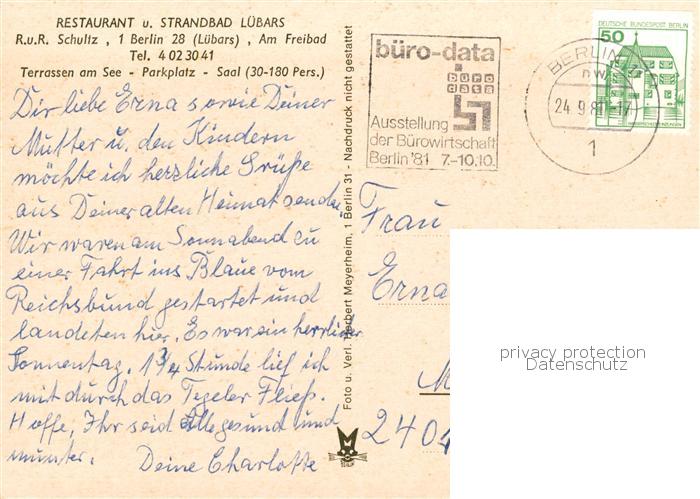 RESTAURANT u. STRANDBAD LÜBARS
R.u.R. Schultz , 1 Berlin 28 (Lübars) , Am Freibad
Tel. 4 02 30 41
Terrassen am See - Parkplatz - Saal (30-180 Pers.)
Dir liebe Erna sowie Deiner
Mutter u. den Kindern
möchte ich herzliche Grüße
aus Deiner alten Heimat senden.
Wir waren am Sonnabend zu
einer Fahrt ins Blaue vom
Reichsbund gestartet und
landeten hier. Es war ein herrlicher
Sonnentag. 1 3/4 Stunde lief ich
mit durch das Tegeler Fließ.
Hoffe, Ihr seid alle gesund und
munter. Deine Charlotte
Foto u. Verl. Herbert Meyerheim, 1 Berlin 31 - Nachdruck nicht gestattet
büro-data
büro
data
Ausstellung
der Bürowirtschaft
Berlin '81 7.-10.10.
BERLIN
24.9.81-17
1
DEUTSCHE BUNDESPOST BERLIN
50
Frau
Erna
M
2404
privacy protection
Datenschutz